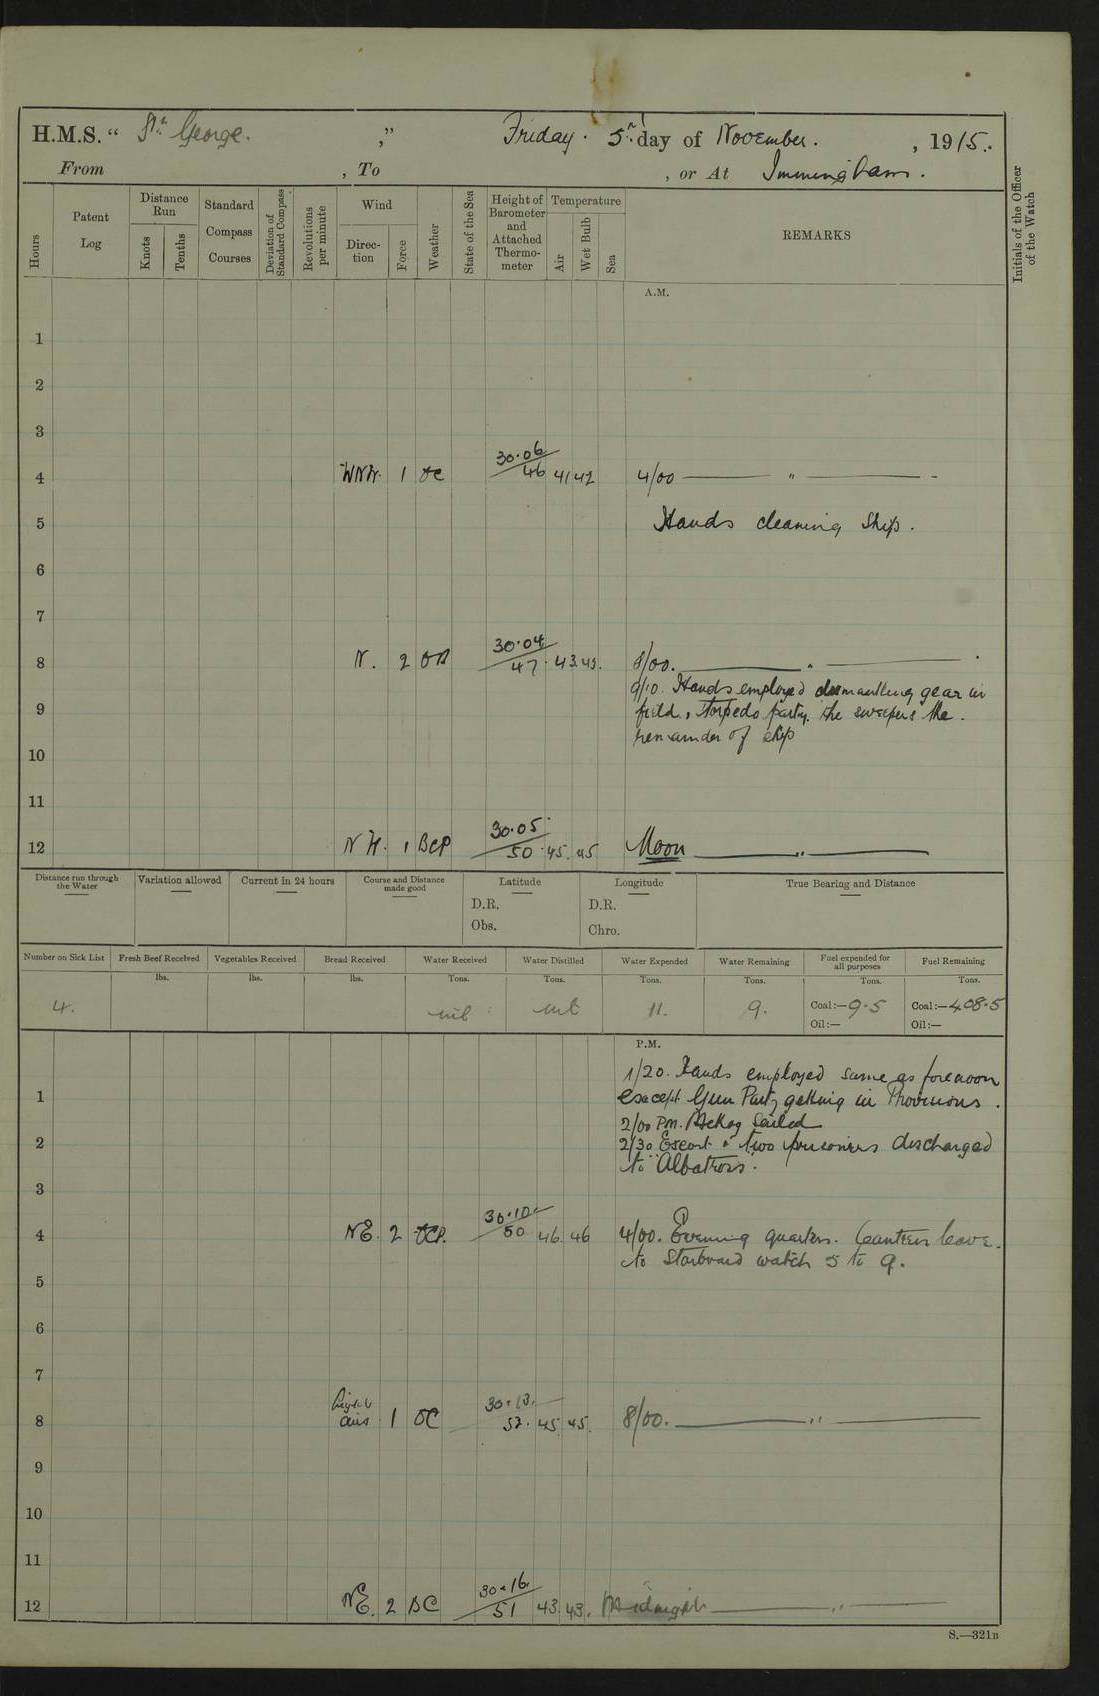 H.M.S. “ St George. ” Friday. 5th day of November. , 1915.
From , To , or At Immingham.
Hours
Patent Log
Distance Run
Knots
Tenths
Standard Compass Courses
Deviation of Standard Compass
Revolutions per minute
Wind
Direc-tion
Force
Weather
State of the Sea
Height of Barometer and Attached Thermo-meter
Temperature
Air
Wet Bulb
Sea
REMARKS
Initials of the Officer of the Watch
A.M.
1
2
3
30.06
4 WNW. 1 OC 46 41 42 4/00 ——— " ———
5 Hands cleaning Ship.
6
7
30.04
8 N. 2 47. 43. 8/00. ——— " ———
9/10. Hands employed dismantling gear in
9 field, Torpedo party. the sweepers the.
remainder of ship
10
11
30.05
12 NW. 1 BCP 50. 45. 45 Noon ——— " ———
Distance run through the Water
Variation allowed
Current in 24 hours
Course and Distance made good
Latitude
D.R.
Obs.
Longitude
D.R.
Chro.
True Bearing and Distance
Number on Sick List
Fresh Beef Received
Vegetables Received
Bread Received
Water Received
Water Distilled
Water Expended
Water Remaining
Fuel expended for all purposes
Fuel Remaining
lbs. lbs. lbs. Tons. Tons. Tons. Tons. Tons. Tons.
4. nil nil 11. 9. Coal:— 9.5 Coal:— 408.5
Oil:— Oil:—
P.M.
1/20. Hands employed same as forenoon
1 except Gun Party getting in Provisions.
2/00 P.M. Sailed
2 2/30 Escort & two prisoners discharged
to "Albatross.
3
30.10
4 NE. 2 OCP. 50 46. 46 4/00. Evening quarters. Canteen leave.
to Starboard watch 5 to 9.
5
6
7
Light 30.13.
8 airs 1 OC 52. 45 45. 8/00. ——— " ———
9
10
11
30.16.
12 NE. 2 BC 51 43. 43. Midnight ——— " ———
S.—321B